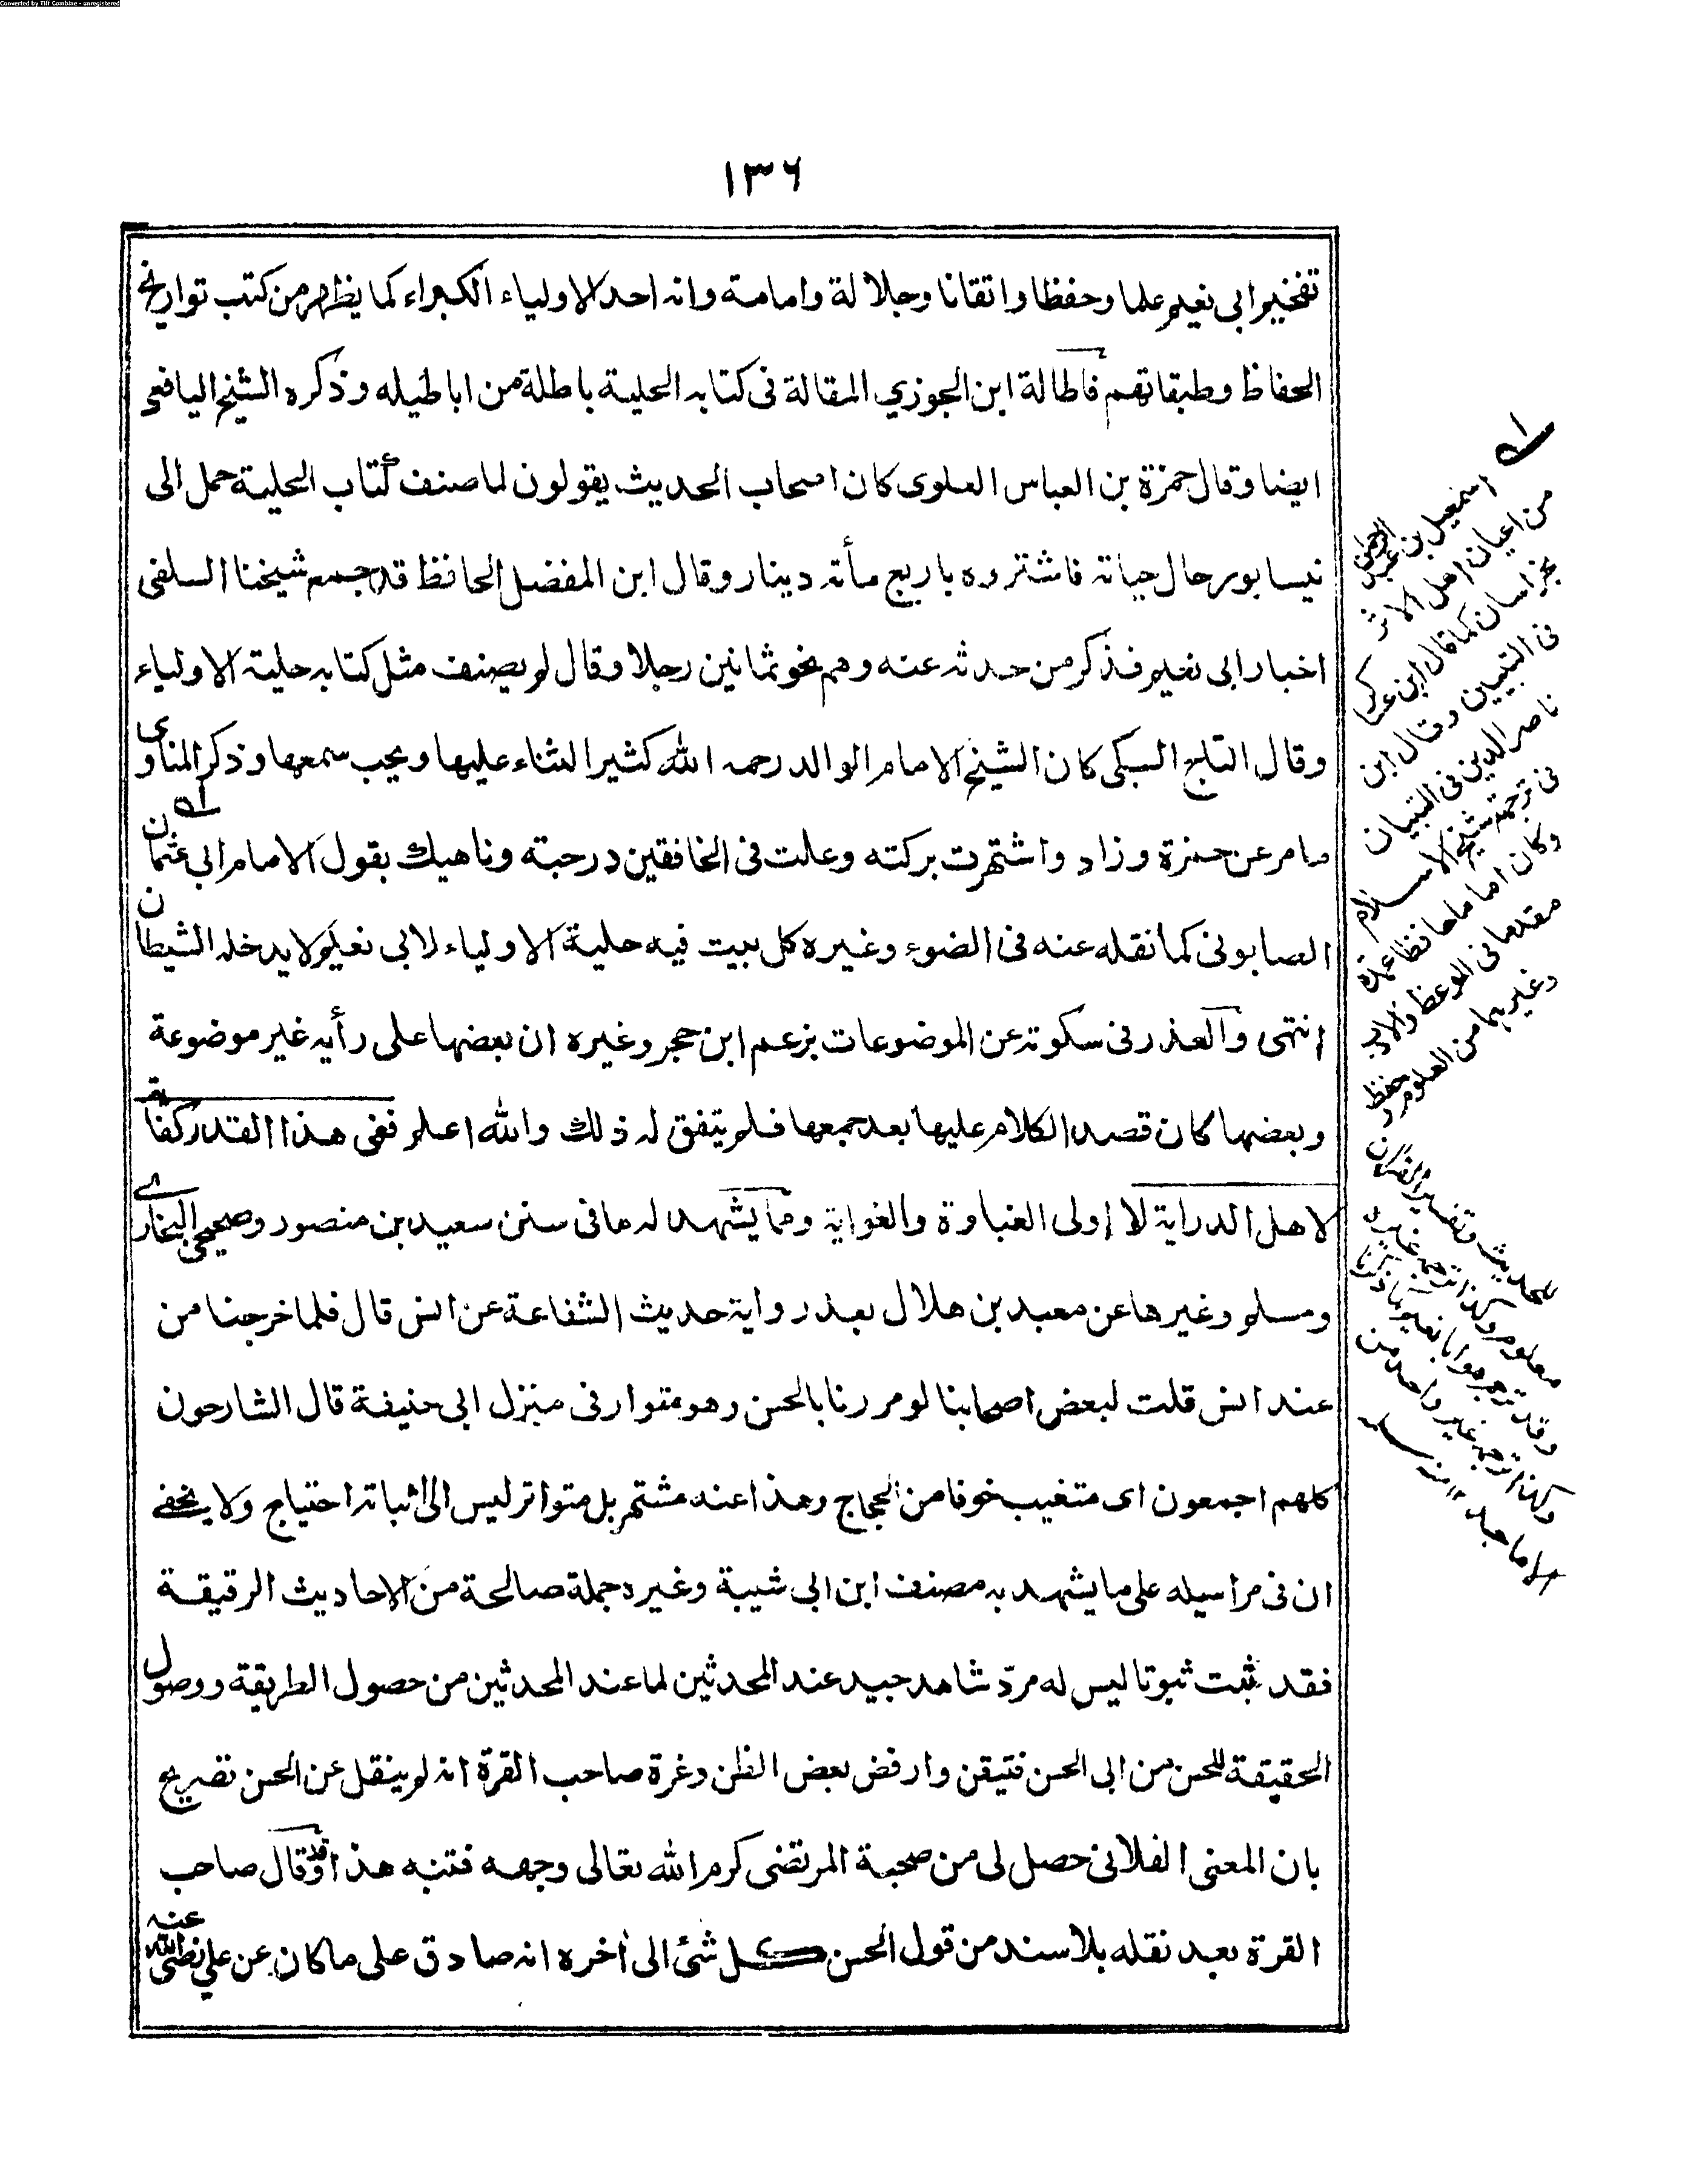 Converted by Tiff Combine - unregistered
١٣٦
تفخير ابى نعيم علما وحفظا واتقانا وجلالة وامامة وانه احد الاولياء الكبراء كما يظهر من كتب تواريخ
الحفاظ وطبقاتهم فاطالة ابن الجوزي المقالة فى كتابه الحلية باطلة من اباطيله وذكره الشيخ اليافعى
ايضا وقال حمزة بن العباس العلوى كان اصحاب الحديث يقولون لما صنف كتاب الحلية حمل الى
نيسابور حال حياته فاشتروه باربع مأته دينار وقال ابن المفضل الحافظ قد جمع شيخنا السلفى
اخبار ابى نعيم فذكر من حدثه عنه وهم نحو ثمانين رجلا وقال لم يصنف مثل كتابه حلية الاولياء
وقال التاج السبكى كان الشيخ الامام الوالد رحمه الله كثير الثناء عليها ويحب سمعها وذكر المناوى
مامر عن حمزة وزاد واشتهرت بركته وعلت فى الخافقين درجته وناهيك بقول الامام ابى عثمان
الصابونى كما نقله عنه فى الضوء وغيره كل بيت فيه حلية الاولياء لابى نعيم لا يدخله الشيطان
انتهى والعذر فى سكوته عن الموضوعات بزعم ابن حجر وغيره ان بعضها على رأيه غير موضوعة
وبعضها كان قصد الكلام عليها بعد جمعها فلم يتفق له ذلك والله اعلم ففى هذا القدر كفاية
لاهل الدراية لا اولى الغباوة والغواية ومما يشهد له مافى سنن سعيد بن منصور وصحيحى البخارى
ومسلم وغيرها عن معبد بن هلال بعد رواية حديث الشفاعة عن انس قال فلما خرجنا من
عند انس قلت لبعض اصحابنا لو مررنا بالحسن وهو متوار فى منزل ابى خليفة قال الشارحون
كلهم اجمعون اى متغيب خوفا من الحجاج وهذا عنه مشتهر بل متواتر ليس الى اثباته احتياج ولا يخفى
ان فى مراسيله على ما يشهد به مصنف ابن ابى شيبة وغيره جملة صالحة من الاحاديث الرقيقة
فقد ثبت ثبوتا ليس له مردّ شاهد جيد عند المحدثين لما عند المحدثين من حصول الطريقة ووصول
الحقيقة للحسن من ابى الحسن فتيقن وارفض بعض الظن وغرة صاحب القرة انه لم ينقل عن الحسن تصريح
بان المعنى الفلانى حصل لى من صحبة المرتضى كرم الله تعالى وجهه فتنبه هذا وقد قال صاحب
القرة بعد نقله بلا سند من قول الحسن كل شئ الى أخره انه صادق على ما كان عن على رضى الله عنه
اسمعيل بن عبد الرحمن
من اعيان اهل الاثر
بخراسان كما قال ابن عساكر
فى التبيين وقال ابن
ناصر الدين فى التبيان
فى ترجمة شيخ الاسلام
وكان اماما حافظا عمدة
مقدما فى الوعظ والادب
وغيرهما من العلوم وحفظ
الحديث وتفسير القرآن
معلوم وكذا ترجمه غيره
وكذا ترجمه غير واحد من
الاماجد ١٢ منه